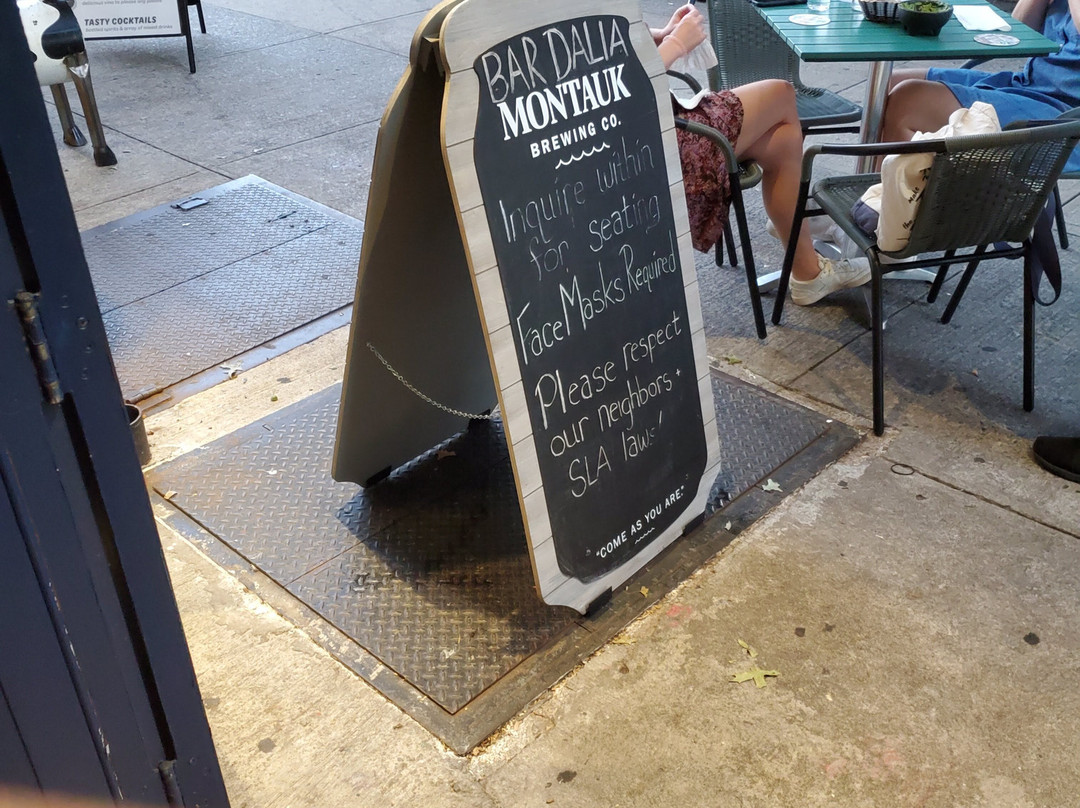 TASTY COCKTAILS
BAR DALIA
MONTAUK
BREWING CO.
Inquire within
for seating
Face Masks Required
Please respect
our neighbors +
SLA laws'
"COME AS YOU ARE."